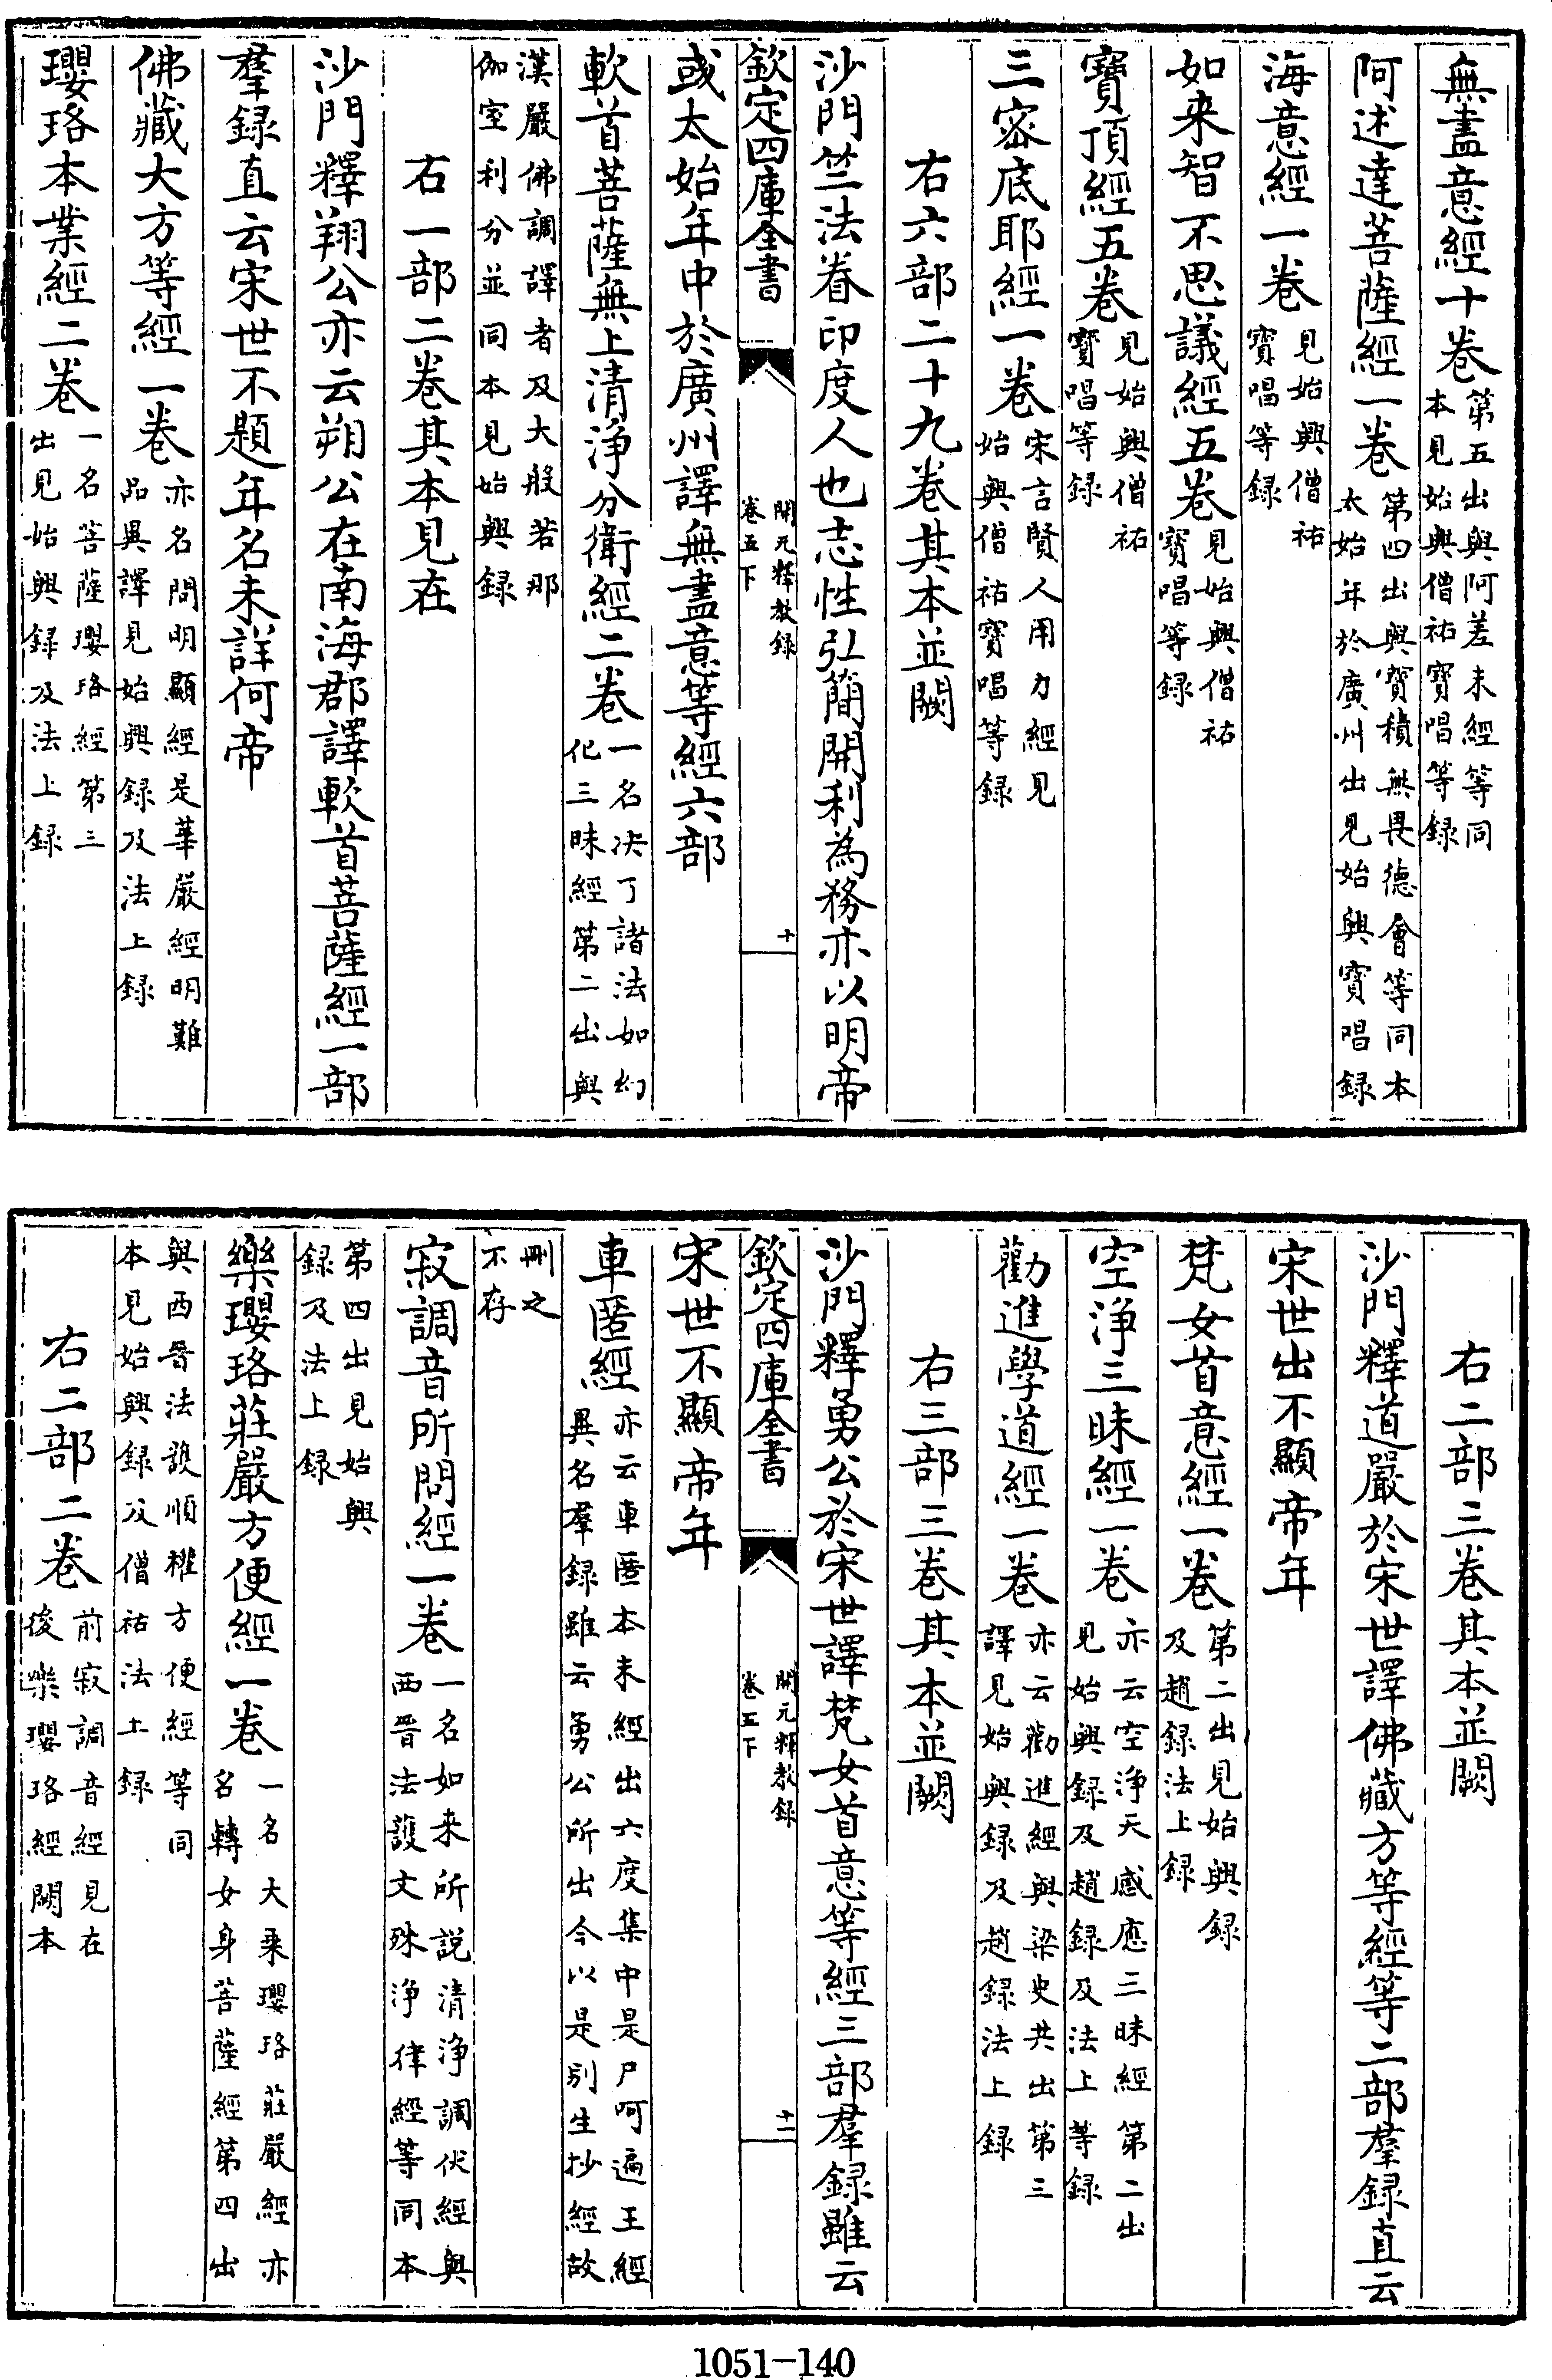 無盡意經十卷第五出與阿差末經等同本見始興僧祐寶唱等録
阿述達菩薩經一卷第四出與寶積無畏德會等同本太始年於廣州出見始興寶唱録
海意經一卷見始興僧祐寶唱等録
如来智不思議經五卷見始興僧祐寶唱等録
寶頂經五卷見始興僧祐寶唱等録
三密底耶經一卷宋言賢人用力經見始興僧祐寶唱等録
右六部二十九卷其本並闕
沙門竺法眷印度人也志性弘簡開利為務亦以明帝
欽定四庫全書
開元釋教録
卷五下
十
或太始年中於廣州譯無盡意等經六部
軟首菩薩無上清浄分衛經二卷一名决了諸法如幻化三昧經第二出與
漢嚴佛調譯者及大般若那伽室利分並同本見始興録
右一部二卷其本見在
沙門釋翔公亦云朔公在南海郡譯軟首菩薩經一部
羣録直云宋世不題年名未詳何帝
佛藏大方等經一卷亦名問明顯經是華嚴經明難品異譯見始興録及法上録
瓔珞本業經二卷一名菩薩瓔珞經第三出見始興録及法上録
右二部三卷其本並闕
沙門釋道嚴於宋世譯佛藏方等經等二部羣録直云
宋世出不顯帝年
梵女首意經一卷第二出見始興録及趙録法上録
空浄三昧經一卷亦云空浄天感應三昧經第二出見始興録及趙録及法上等録
勸進學道經一卷亦云勸進經與梁史共出第三譯見始興録及趙録法上録
右三部三卷其本並闕
沙門釋勇公於宋世譯梵女首意等經三部羣録雖云
欽定四庫全書
開元釋教録
卷五下
十一
宋世不顯帝年
車匿經亦云車匿本末經出六度集中是尸呵遍王經異名羣録雖云勇公所出今以是别生抄經故
刪之不存
寂調音所問經一卷一名如来所説清浄調伏經與西晉法護文殊浄律經等同本
第四出見始興録及法上録
樂瓔珞莊嚴方便經一卷一名大乗瓔珞莊嚴經亦名轉女身菩薩經第四出
與西晉法護順權方便經等同本見始興録及僧祐法上録
右二部二卷前寂調音經見在後樂瓔珞經闕本
1051-140